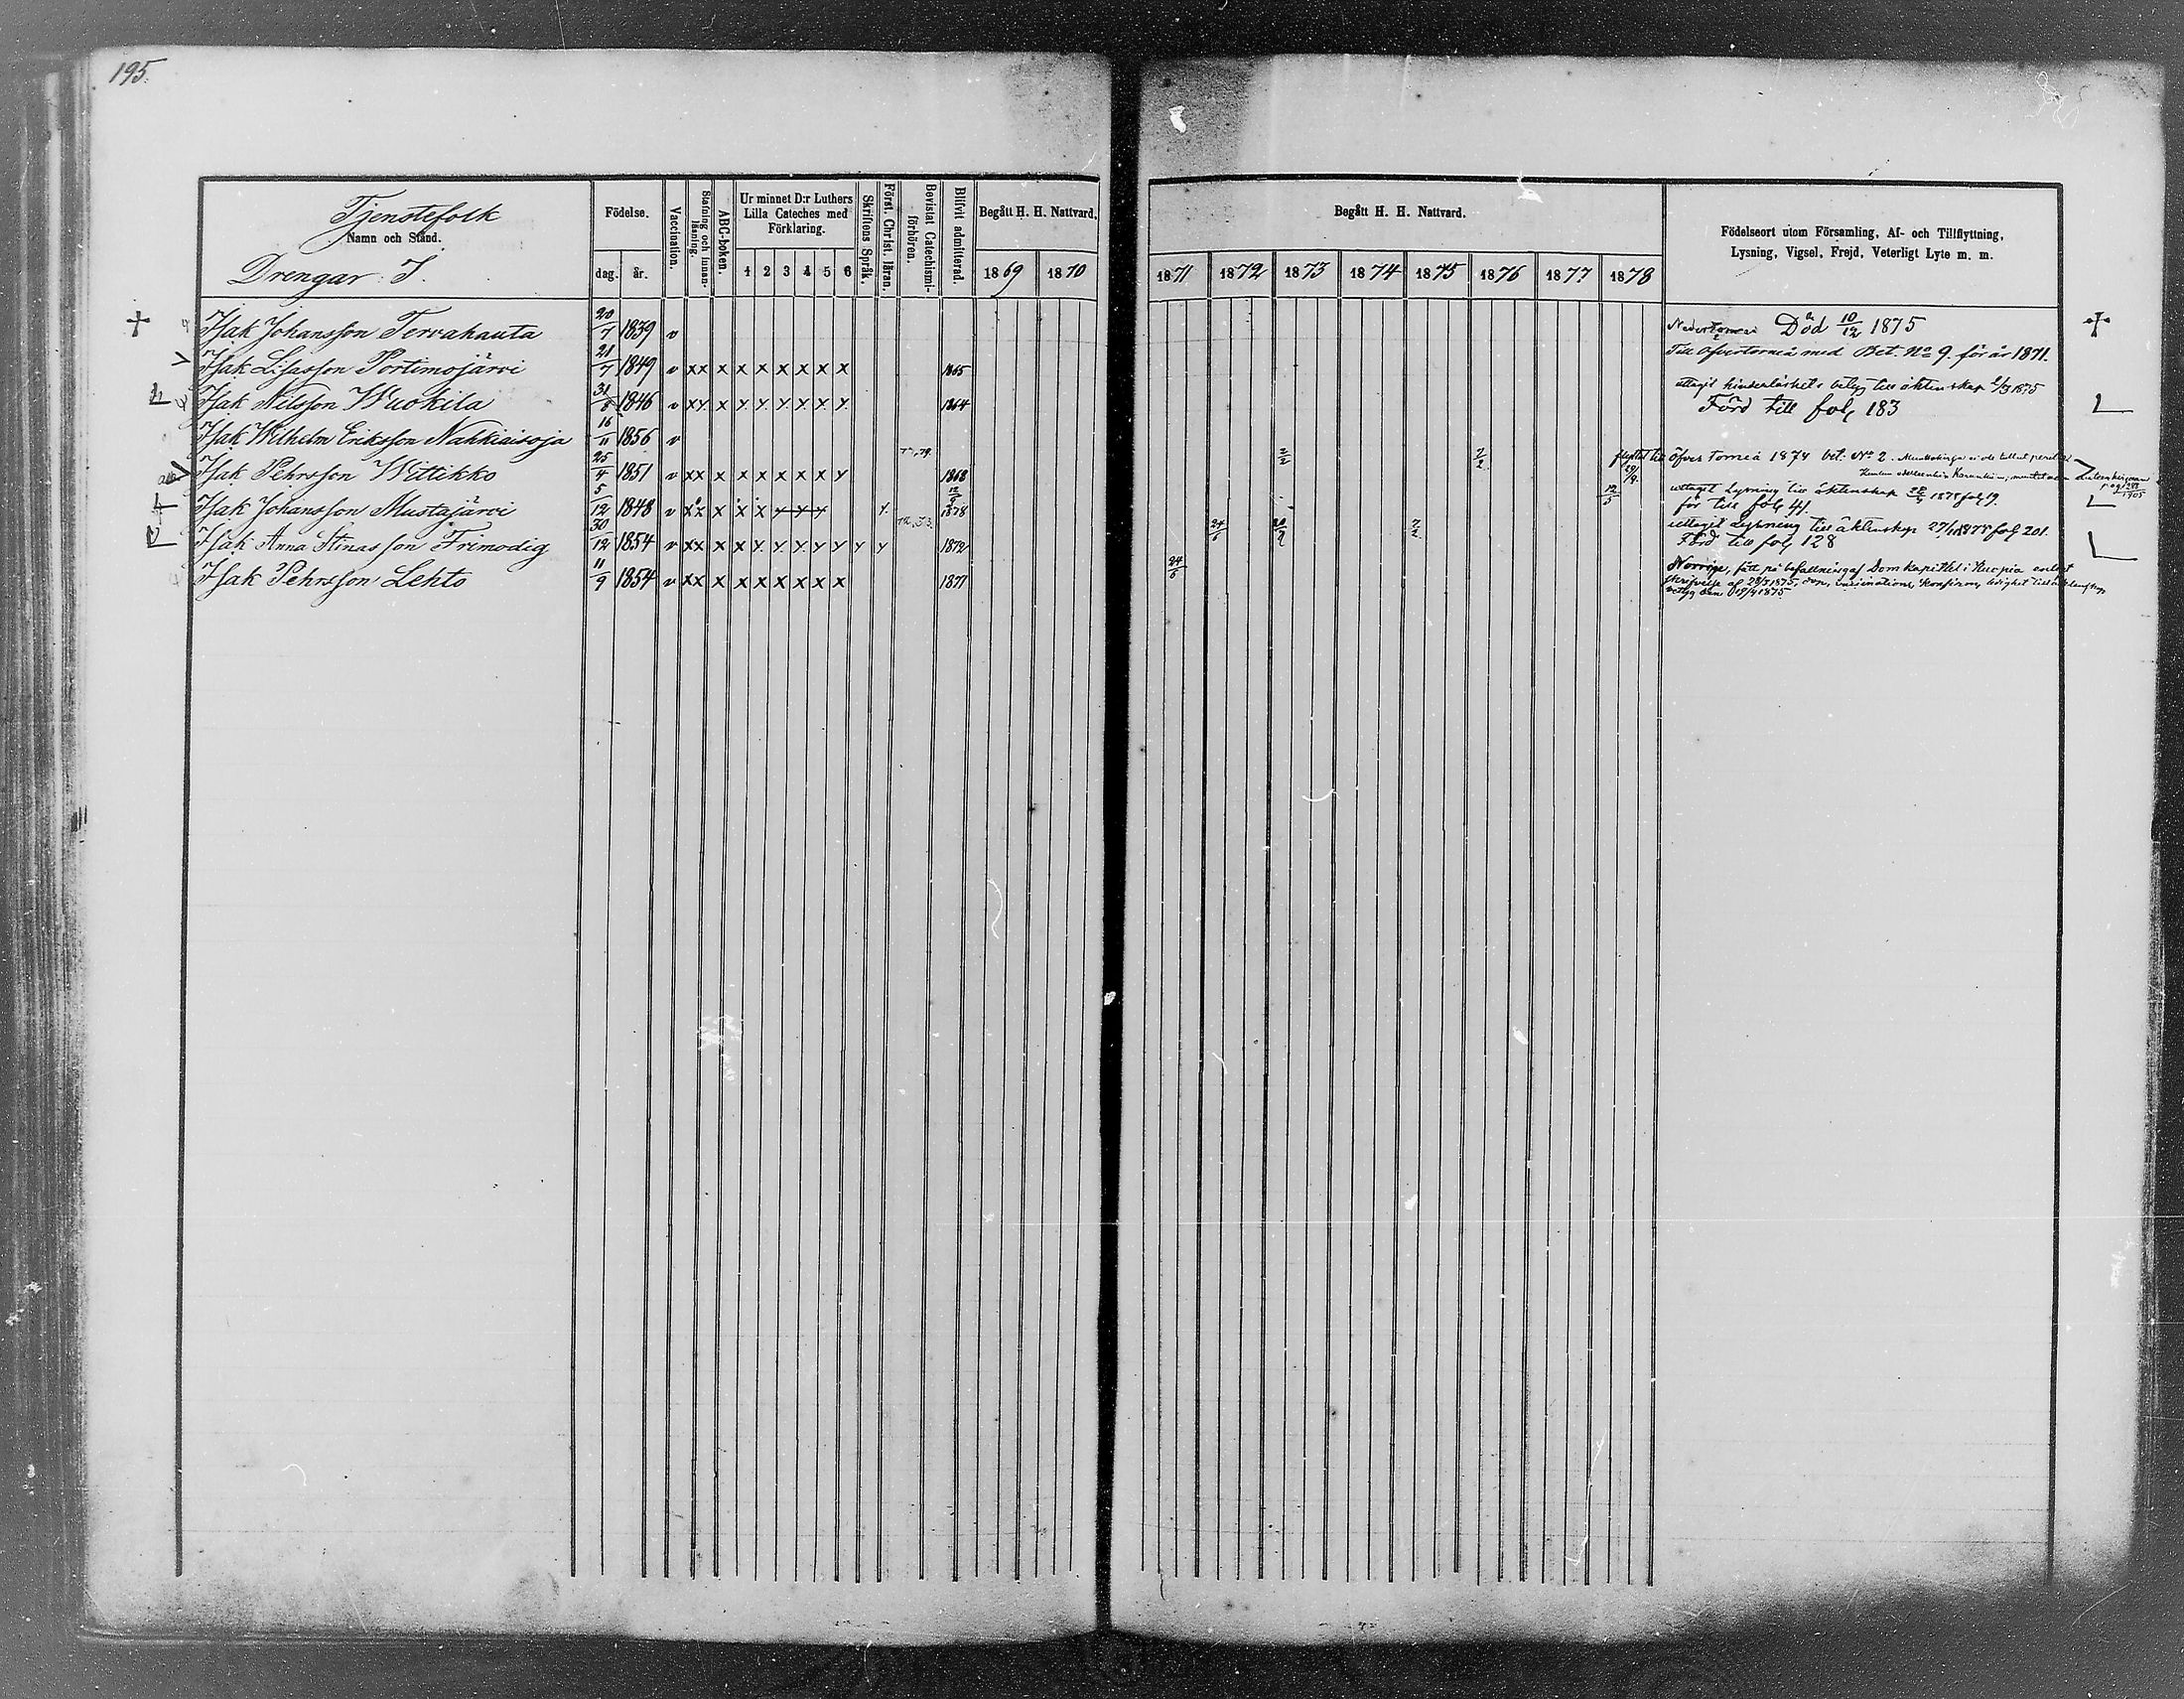 195.
Tjenstefolk
Namn och Stånd.
Drengar I.
Födelse.
dag. år.
Vaccination.
Stafning och innan-läsning.
ABC-boken.
Ur minnet D:r Luthers
Lilla Cateches med
Förklaring.
1 2 3 4 5 6
Skriftens Språk.
Först. Christ. läran.
Bevistat Catechismi-förhören.
Blifvit admitterad.
Begått H. H. Nattvard.
1869 1870
Begått H. H. Nattvard.
1871 1872 1873 1874 1875 1876 1877 1878
Födelseort utom Församling, Af- och Tillflyttning,
Lysning, Vigsel, Frejd, Veterligt Lyte m. m.
Isak Johansson Tervahauta 20/7 1839 v Död 10/12 1875
Isak Lisasson Portimojärvi 21/7 1849 v xx x x x x x x x 1865 Till Öfvertorneå med Bet. No 9 för år 1871.
Isak Nilsson Wuokila 31/8 1846 v xy x y y y y y y 1864 till äktenskap 2/3 1875
Förd till fol. 183
Isak Wilhelm Eriksson Nahkiaisoja 16/11 1856 v
Isak Pehrsson Wittikko 25/4 1851 v xx x x x x x x y 1868 2/2 2/2 flyttat till Öfver Torneå 1874 bet. No 2.
Isak Johansson Mustajärvi 5/12 1848 v xx x x x y y y y 1878 12/5 uttaget Lysning till äktenskap 1878 fol. 19.
för till fol. 41.
Isak Anna Stinasson Frimodig 30/12 1854 v xx x x y y y y y y y 1872 24/6 7/2 uttaget Lysning till äktenskap 27/1 1878 fol 201.
Förd till fol 128
Isak Pehrsson Lehto 11/9 1854 v xx x x x x x x x 1871 24/6 Norrige, fått på befallning af Domkapitlet i Kuopio enligt
skrifvelse af 28/3 1875, ledighet till äktenskap
betyg den 19/4 1875